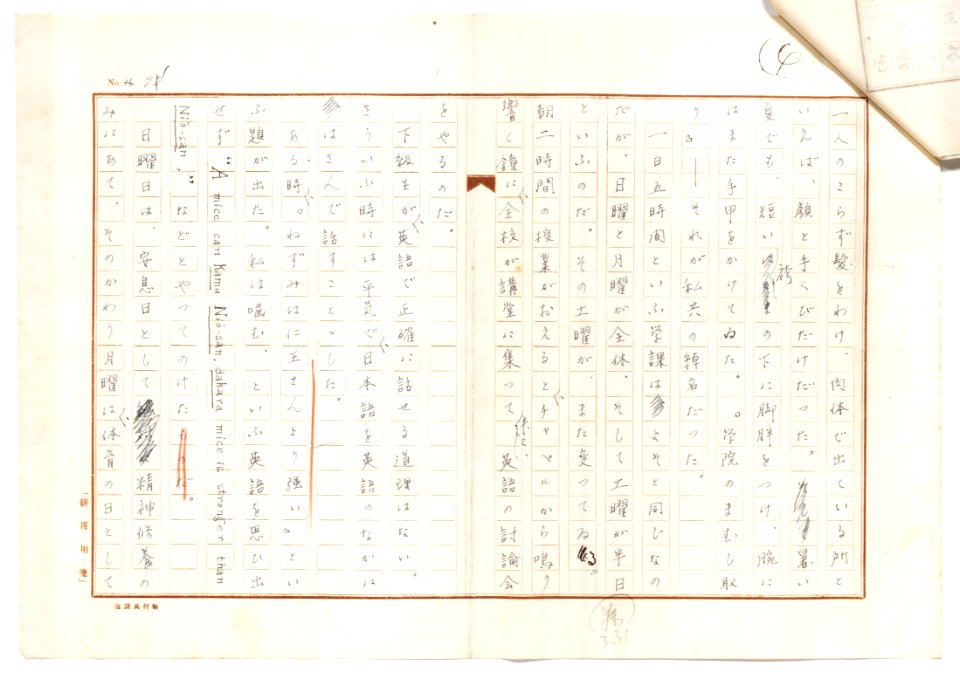 ④
No.
一人のこらず髪をわけ、肉体で出ている所と
いえば、顔と手くびだけだった。暑い
夏でも、短い袴の下に脚胖をつけ、腕に
はまた手甲をかけてゐた。『学院のまむし取
り』――それが私共の綽名だった。
一日五時間といふ学課はよそと同じなの
だが、日曜と月曜が全休、そして土曜が半日
といふのだ。その土曜が、また変つてゐる。
朝二時間の授業がおえるとチャペルから鳴り
響く鐘に、全校が講堂に集つて、英語の討論会
をやるのだ。
下級生が、英語で正確に話せる道理はない。
さういふ時には平気で、日本語を英語のなかに
はさんで話すことゝした。
ある時、『ねずみは仁王さんより強い』とい
ふ題が出た。私は噛む、といふ英語を思ひ出
せず“A mice can Kamu Niō-san, dakara mice is stronger than
Niō-san,”などとやつてのけたものだ。
日曜日は、安息日として精神修養の
みにあて、そのかわり月曜は、体育の日として